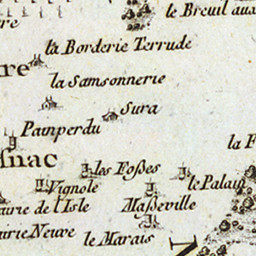 le Breuil aux
re
la Borderie Terrude
re
la Samsonnerie
Sura
Pamperdu
nac
la F
les Foßes
le Palau
Vignole
airie de l'Isle
Maßeville
airie Neuve
le Marais